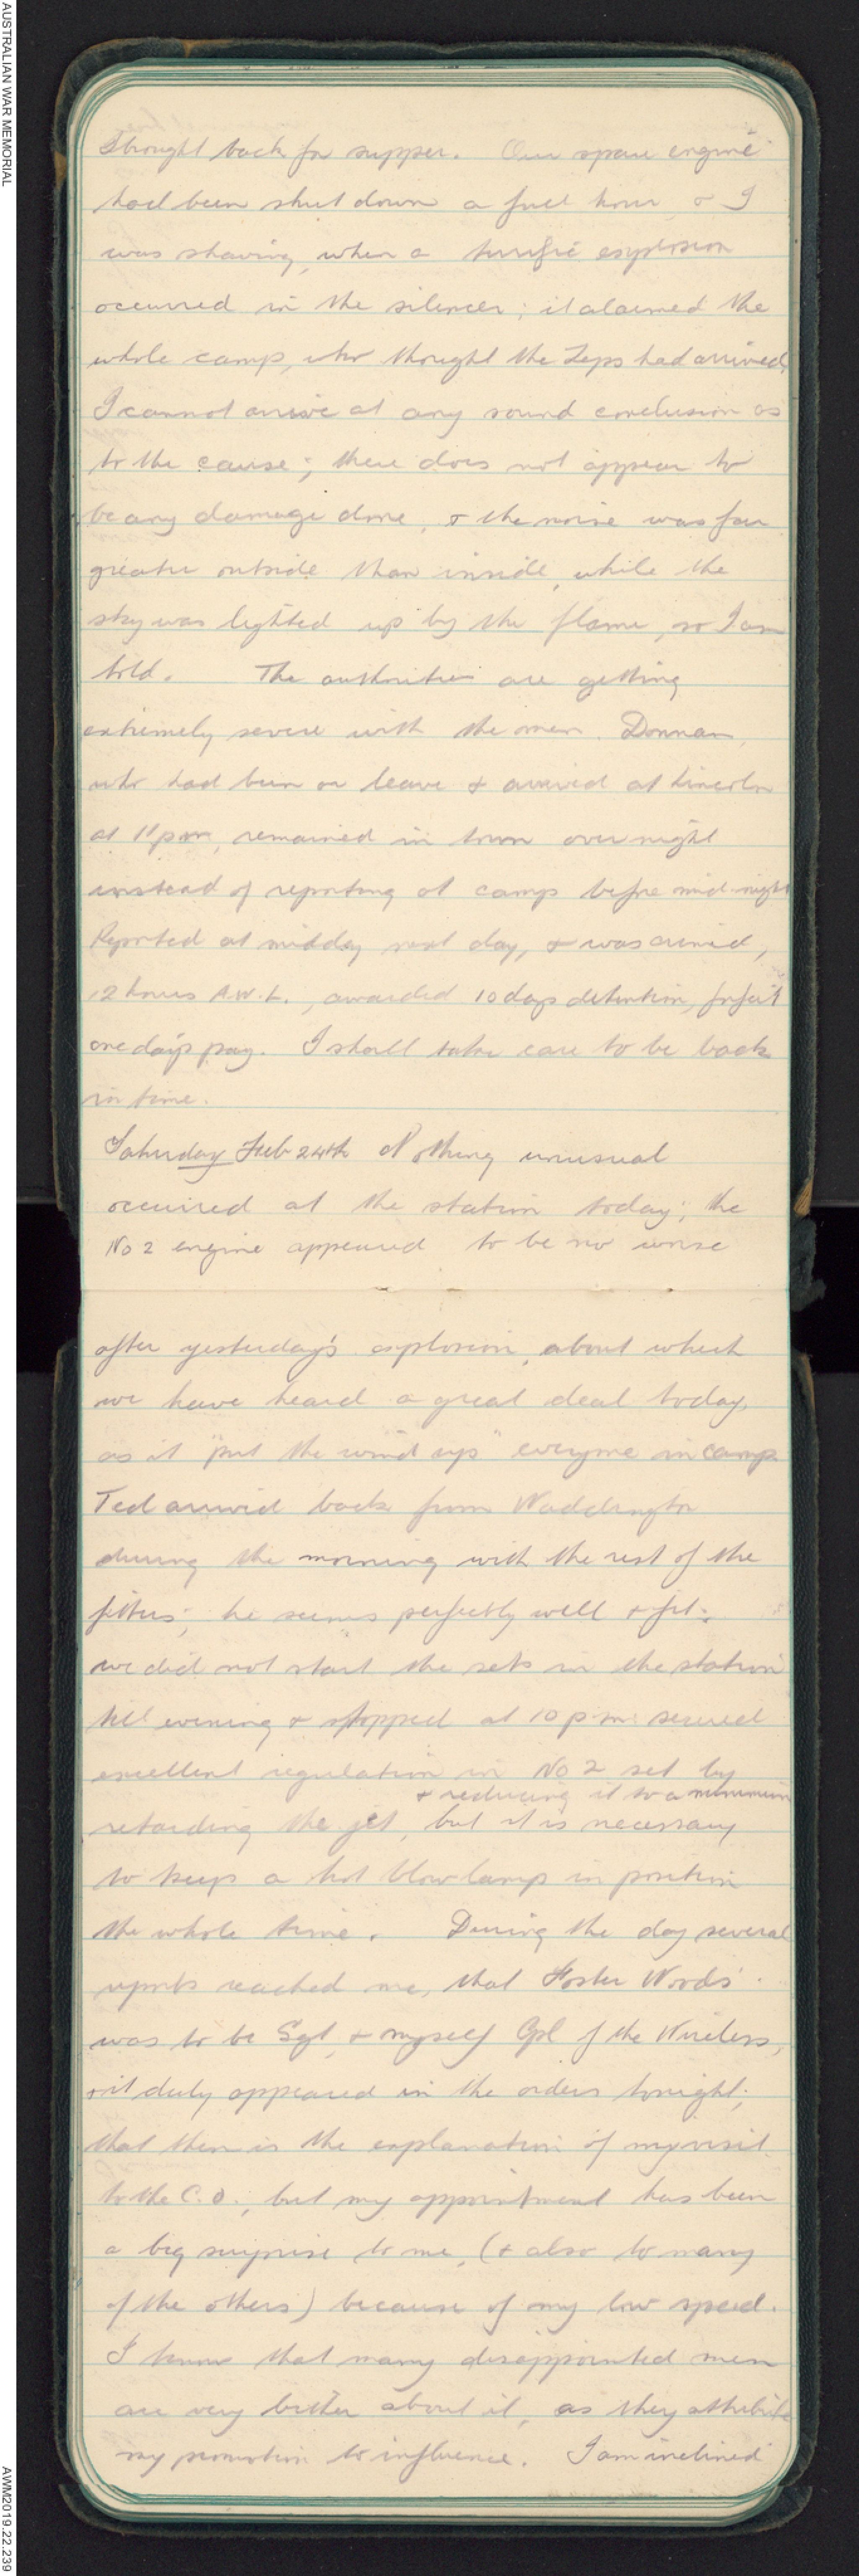 AUSTRALIAN WAR MEMORIAL
brought back for supper. Our spare engine
had been shut down a full hour, & I
was shaving, when a terrific explosion
occurred in the silencer; it alarmed the
whole camp, who thought the Zeps had arrived.
I cannot arrive at any sound conclusion as
to the cause; there does not appear to
be any damage done, & the noise was far
greater outside than inside, while the
sky was lighted up by the flame, so I am
told. The authorities are getting
extremely severe with the men. Donnan,
who had been on leave & arrived at Lincoln
at 11 pm, remained in town over night
instead of reporting at camp before mid-night
Reported at midday next day, & was crimed,
12 hours A.W.L., awarded 10 days detention, forfeit
one day's pay. I shall take care to be back
in time.
Saturday Feb 24th Nothing unusual
occurred at the station today; the
No 2 engine appeared to be no worse
after yesterday's explosion, about which
we have heard a great deal today,
as it "put the wind up" everyone in camp.
Ted arrived back from Waddington
during the morning with the rest of the
fitters; he seems perfectly well & fit.
we did not start the sets in the station
till evening & stopped at 10 pm: secured
excellent regulation in No 2 set by
& reducing it to a minimum
retarding the jet, but it is necessary
to keep a hot blow lamp in position
the whole time. During the day several
reports reached me, that Foster Woods
was to be Sgt, & myself Cpl of the Wireless,
& it duly appeared in the orders tonight;
that then is the explanation of my visit
to the C.O., but my appointment has been
a big surprise to me, (& also to many
of the others) because of my low speed.
I know that many disappointed men
are very bitter about it, as they attribute
my promotion to influence. I am inclined
AWM2019.22.239